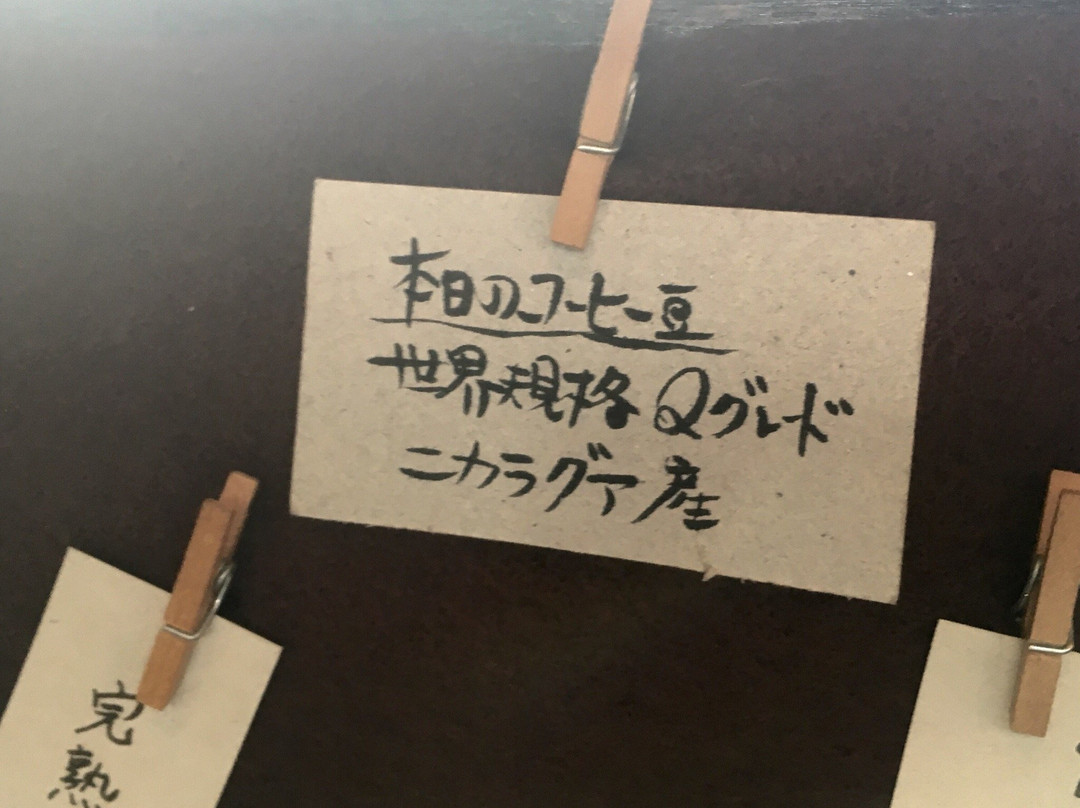 本日のコーヒー豆
世界規格 Qグレード
ニカラグア産
完熟